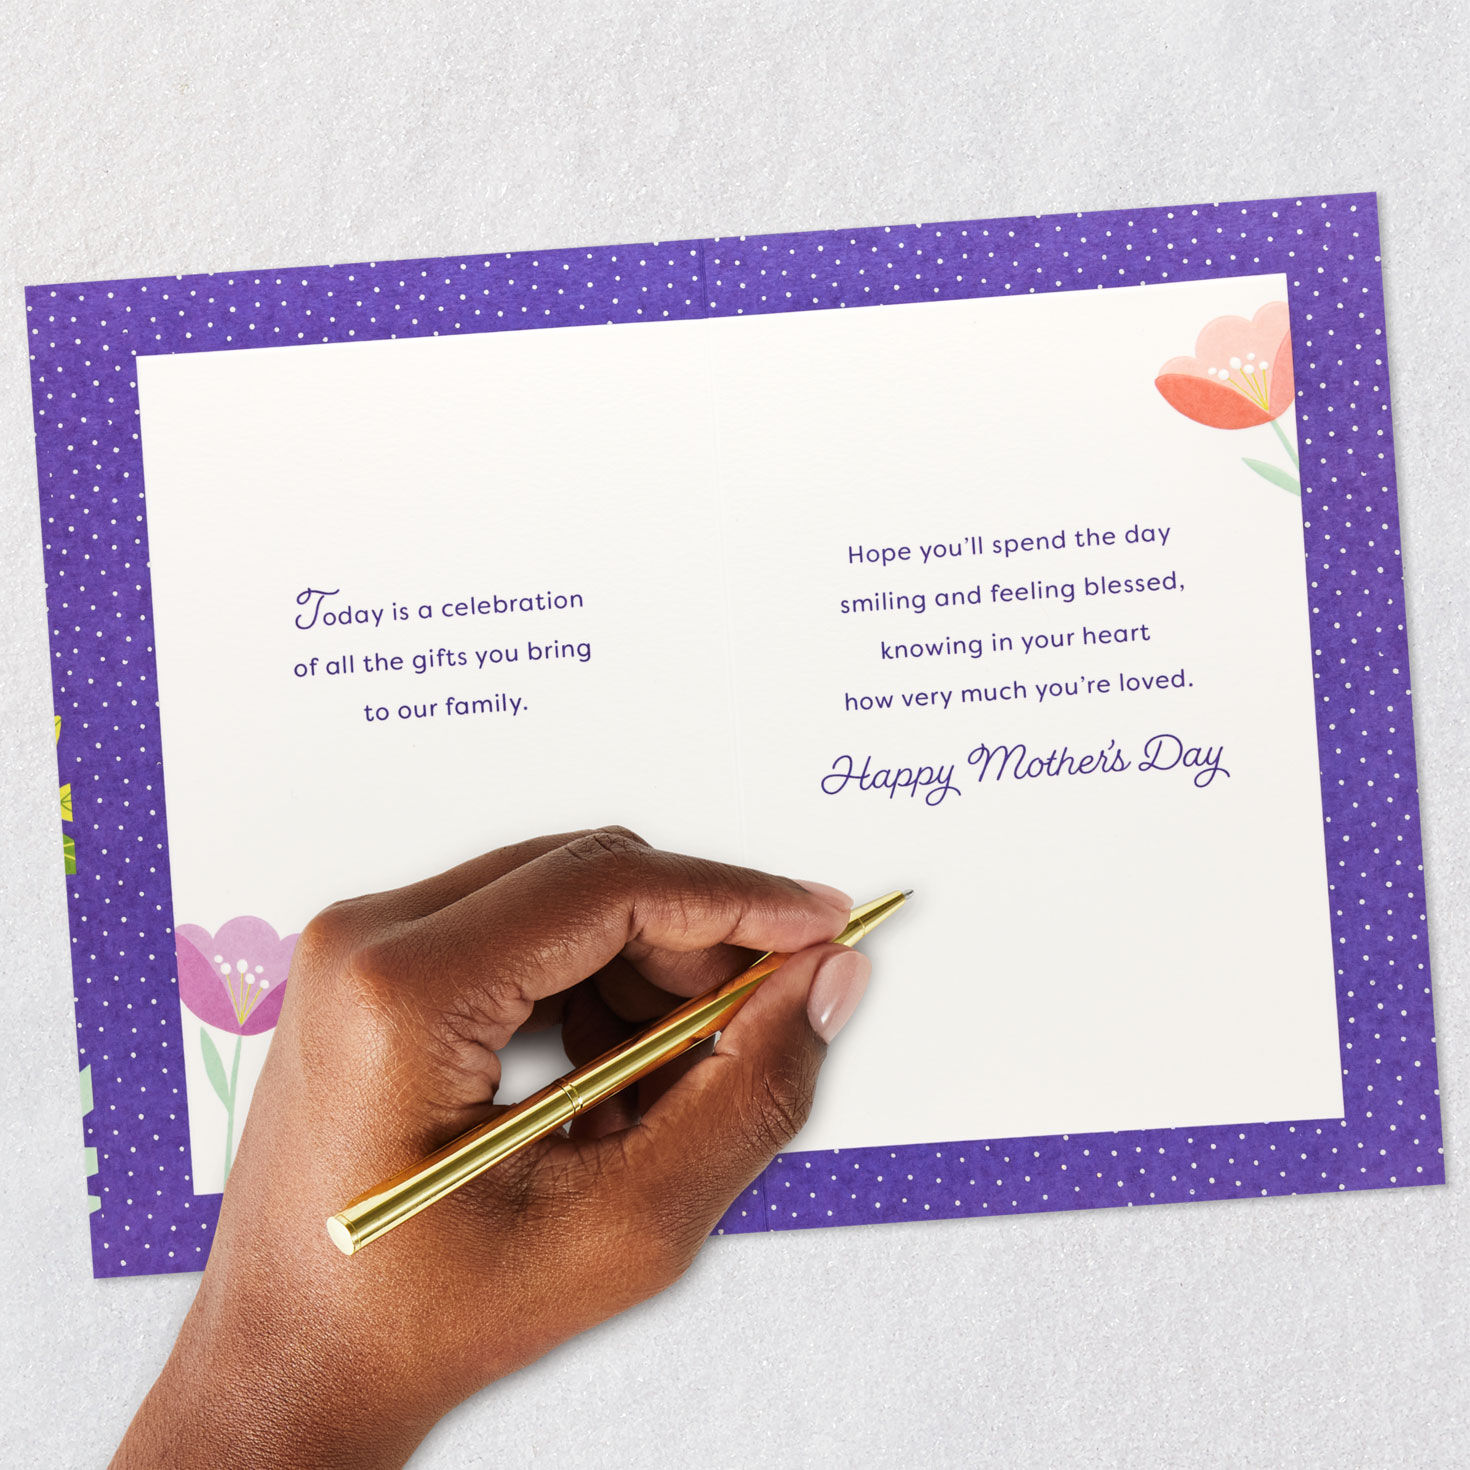 Today is a celebration
of all the gifts you bring
to our family.
Hope you'll spend the day
smiling and feeling blessed,
knowing in your heart
how very much you're loved.
Happy Mother's Day